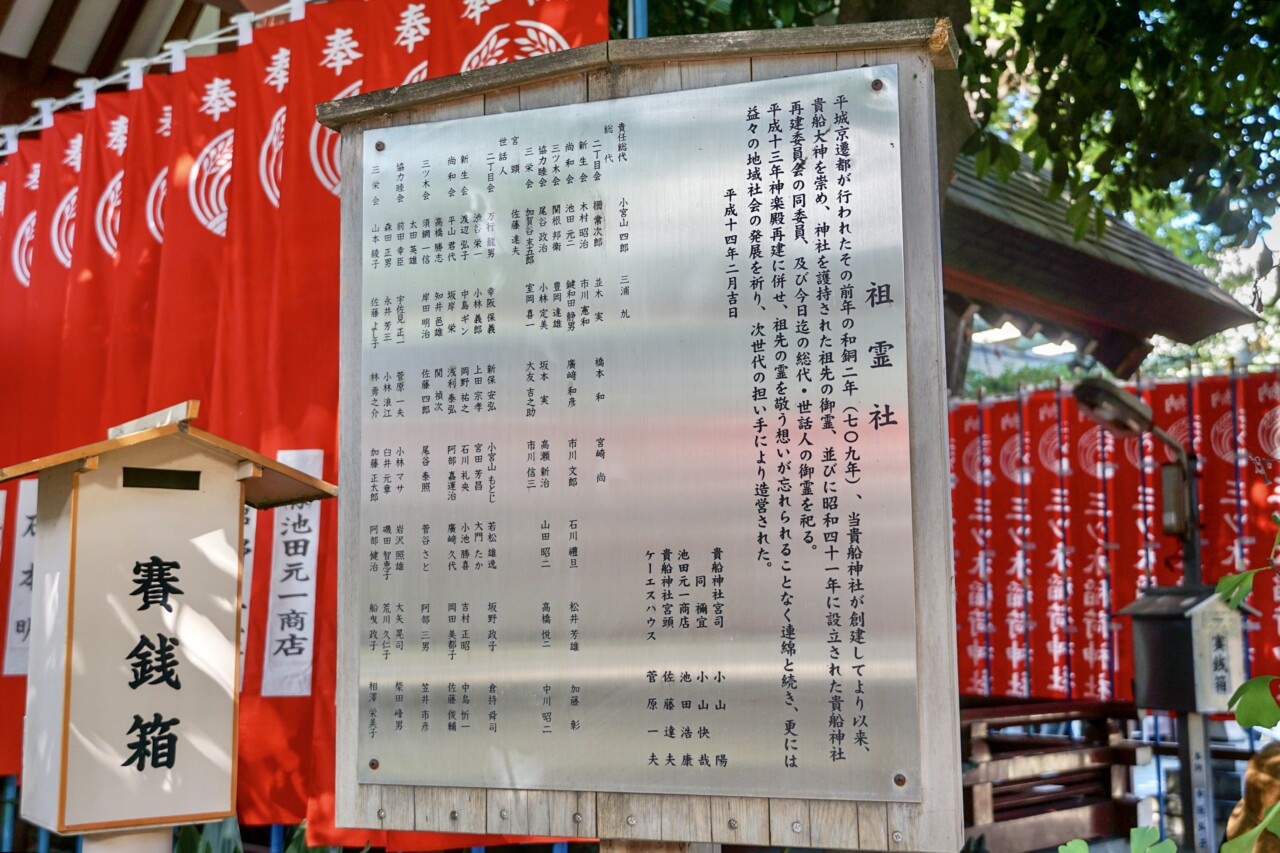 祖霊社
平城京遷都が行われたその前年の和銅二年（七〇九年）、当貴船神社が創建してより以来、
貴船大神を崇め、神社を護持された祖先の御霊、並びに昭和四十一年に設立された貴船神社
再建委員会の同委員、及び今日迄の総代・世話人の御霊を祀る。
平成十三年神楽殿再建に併せ、祖先の霊を敬う想いが忘れられることなく連綿と続き、更には
益々の地域社会の発展を祈り、次世代の担い手により造営された。
平成十四年二月吉日
貴船神社宮司 小山陽
同 禰宜 小山快哉
池田元一商店 池田浩康
貴船神社宮頭 佐藤達夫
ケーエスハウス 菅原一夫
責任総代 小宮山四郎 三浦
総代
二丁目会 柵常次郎 並木実 橋本和 宮崎尚
新生会 木村昭治 市川憲和
尚和会 池田元二 鍵和田静男 廣﨑和彦 市川文郎 石川禮旦 松井芳雄 加藤彰
三ツ木会 関根邦衛 豊岡達雄
協力睦会 尾谷政治 小林定美 坂本実 高瀬新治 山田昭二 高橋悦二 中川昭二
三栄会 加賀谷末五郎 室岡喜一 大友吉之助 市川信三
宮頭 佐藤達夫
世話人
二丁目会 万行龍男 幸阪保義 新保安弘 小宮山もとじ 若松雄逸 坂野政子 倉持舜司
渋谷栄一 小林義郎 上田宗孝 宮田芳昌 大門たか
新生会 渡辺弘子 中島ギン 岡野祐之 石川礼央 小池勝喜 吉村正昭 中島忻一
尚和会 平山君代 坂岸栄 浅利泰弘 阿部嘉運治 廣﨑久代 岡田美都子 佐藤俊輔
高橋勝志 知井邑雄 関禎次
三ツ木会 須鋼一信 岸田明治 佐藤四郎 尾谷泰照 菅谷さと 阿部三男 笠井市彦
太田英雄
協力睦会 前田幸臣 宇佐見正二 菅原一夫 小林マサ 岩沢照雄 大矢晃司 柴田峰男
森田正男 永井芳三 小林浪江 臼井元章 磯田智恵子 荒川久仁子
三栄会 山本綾子 佐藤よし子 林勇之介 加藤正太郎 阿部健治 船曳政子 相澤栄美子
賽銭箱
奉
奉
奉
奉
奉
奉
池田元一商店
本 明
三ツ木稲荷神社
三ツ木稲荷神社
三ツ木稲荷神社
賽銭箱